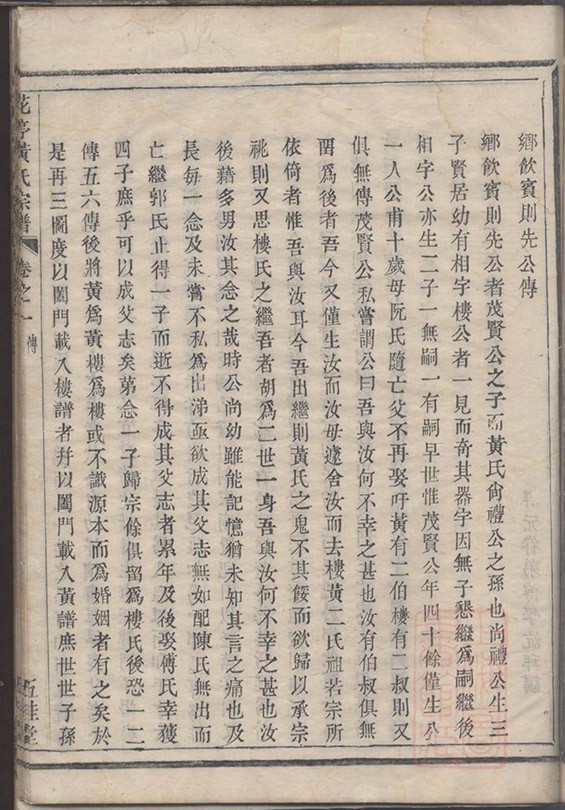 鄉飲賓則先公傳
鄉飲賓則先公者茂賢公之子而黃氏尙禮公之孫也尚禮公生三
子賢居幼有相字樓公者一見而奇其器字因無子懇繼爲嗣繼後
相字公亦生二子一無嗣一有嗣早世惟茂賢公年四十餘僅生公
一人公甫十歲母阮氏隨亡父不再娶吁黃有二伯樓有二叔則又
俱無傳茂賢公私嘗謂公曰吾與汝何不幸之甚也汝有伯叔俱無
爲後者吾今又僅生汝而汝母遽舍汝而去樓黃二氏祖若宗所
依倚者惟吾與汝耳今吾出繼則黃氏之鬼不其餒而欲歸以承宗
祧則又思樓氏之繼吾者胡爲二世一身吾與汝何不幸之甚也汝
後藉多男汝其念之哉時公尚幼雖能記憶猶未知其言之痛也及
長每一念及未嘗不私爲出涕亟欲成其父志無如配陳氏無出而
亡繼郭氏止得一子而逝不得成其父志者累年及後娶傅氏幸獲
四子庶乎可以成父志矣第念一子歸宗餘俱留爲樓氏後恐一二
傳五六傳後將黃爲黃樓爲樓或不識源本而爲婚姻者有之矣於
是再三圖度以闔門載入樓譜者幷以闔門載入黃譜庶世世子孫
花亭黃氏宗譜
卷之一
傳
五桂堂